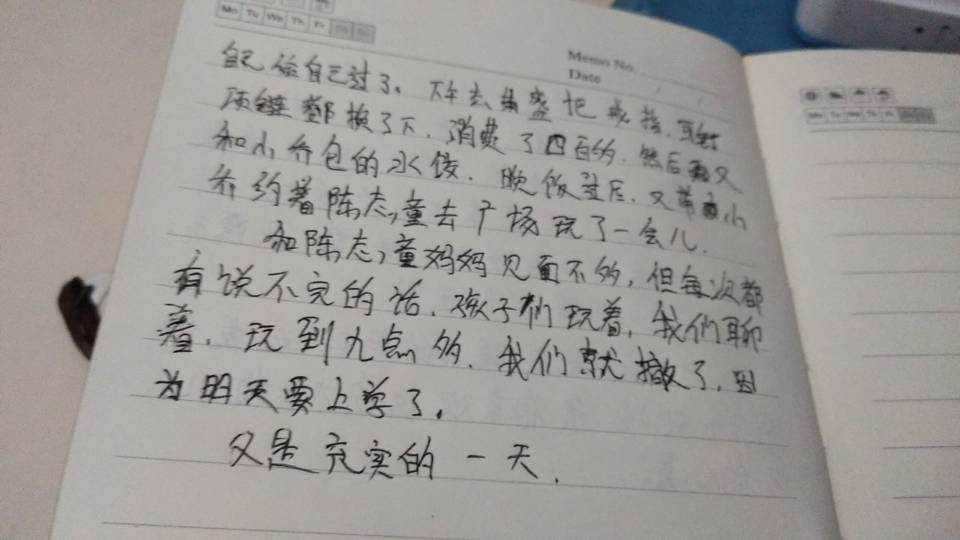 Mo Tu We Th Fr Sa Su
Memo No.
Date
自己给自己过了。下午去集盛把戒指、耳钉
项链都换了下,消费了四百多.然后又
和小乔包的水饺.晚饭过后,又带小
乔约着陈志童去广场玩了一会儿.
和陈志童妈妈见面不多,但每次都
有说不完的话.孩子们玩着,我们聊
着.玩到九点多.我们就撤了.因
为明天要上学了.
又是充实的一天.